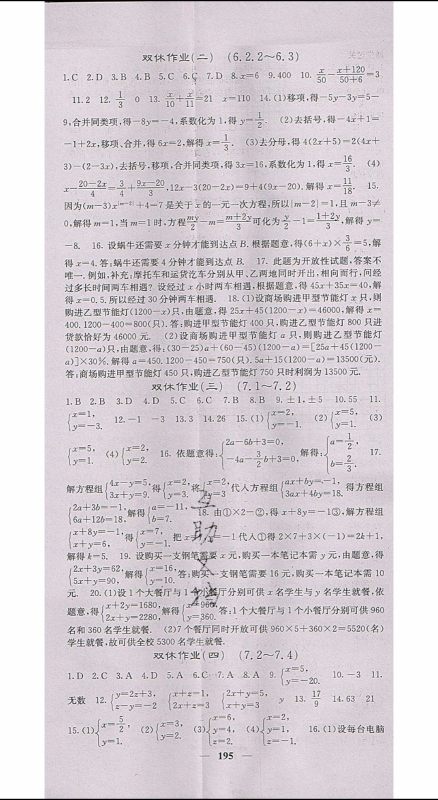 双休作业(二) (6.2.2～6.3)
1.C 2.D 3.B 4.B 5.C 6.C 7.D 8.x=6 9.400 10.x/50-(x+120)/(50+6)=3
11.2 12.1/3 0 13.x/10+x/11=21 x=110 14.(1)移项,得-5y-3y=5-
9,合并同类项,得-8y=-4,系数化为1,得y=1/2. (2)去括号,得-4x+1=
-1+2x,移项、合并,得6x=2,解得x=1/3. (3)去分母,得4(2x+5)=2(4x+
3)-(2-3x),去括号,移项,合并同类项,得3x=16,系数化为1,得x=16/3. (4)
x-(20-2x)/4=3/4+(9x-20)/3,12x-3(20-2x)=9+4(9x-20).解得x=11/18. 15.
因为(m-3)x^(|m-2|)+4=7是关于x的一元一次方程,所以|m-2|=1,且m-3≠
0,解得m=1,当m=1时,方程my/2-m=(m+2y)/3可化为y/2-1=(1+2y)/3,解得y=
-8. 16.设蜗牛还需要x分钟才能到达点B.根据题意,得(6+x)×3/6=5,解
得x=4.答:蜗牛还需要4分钟才能到达点B. 17.此题为开放性试题,答案不
唯一.例如,补充:摩托车和运货汽车分别从甲、乙两地同时开出,相向而行,问经
过多长时间两车相遇?设经过x小时两车相遇,根据题意,得45x+35x=40,解
得x=0.5.所以经过30分钟两车相遇. 18.(1)设商场购进甲型节能灯x只,则
购进乙型节能灯(1200-x)只,由题意,得25x+45(1200-x)=46000,解得x=
400.1200-400=800(只).答:购进甲型节能灯400只,购进乙型节能灯800只进
货款恰好为46000元. (2)设商场购进甲型节能灯a只,则购进乙型节能灯
(1200-a)只,由题意,得:(30-25)a+(60-45)(1200-a)=[25a+45(1200-
a)]×30%.解得a=450.1200-450=750(只).5a+15(1200-a)=13500(元).
答:商场购进甲型节能灯450只,购进乙型节能灯750只时利润为13500元.
双休作业(三) (7.1～7.2)
1.B 2.B 3.D 4.C 5.B 6.D 7.B 8.B 9.±1,±5 10.55 11.
{x=1, y=-3. 12.-1 -3 13.3 14.26 15.(1){x=2, y=-1. (2){x=5, y=1. (3)
{x=5, y=1. (4){x=2, y=2. 16.依题意得:{2a-6b+3=0, -4a-3/2b+3=0,解得:{a=1/2, b=2/3. 17.
解方程组{4x-y=5, 3x+y=9.得{x=2, y=3.将{x=2, y=3.代入方程组{ax+by=-1, 3ax+4by=18.得方程组
{2a+3b=-1, 6a+12b=18.解得{a=-11, b=7. 18.由①×2-②,得x+8y=-1③,解方程组
{x+8y=-1, x+y=6,得{x=7, y=-1.把x=7,y=-1代入①得2×7+3×(-1)=2k+1,
解得k=5. 19.设购买一支钢笔需要x元,购买一本笔记本需y元,由题意,得
{2x+3y=62, 5x+y=90.解得{x=16, y=10.答:购买一支钢笔要16元,购买一本笔记本需10
元. 20.(1)设1个大餐厅与1个小餐厅分别可供x名学生与y名学生就餐,依
题意,得{x+2y=1680, 2x+y=2280.解得{x=960, y=360.答:1个大餐厅与1个小餐厅分别可供960
名和360名学生就餐. (2)7个餐厅同时开放可供960×5+360×2=5520(名)
学生就餐,故可供全校5300名学生就餐.
双休作业(四) (7.2～7.4)
1.D 2.C 3.A 4.D 5.A 6.C 7.A 8.A 9.{x=5, y=-20. 10.-3 11.
无数 12.{y=2z+3, z=y=-2 {x+z=1, 2x+z=3 {2x+y=5, x+y=3 13.17/9 14.63 21
15.(1){x=5/2, y=1. (2){x=3, y=2. (3){x=6, y=4, z=2. (4){x=2, y=1, z=-1. 16.(1)设每台电脑
195
互助文档